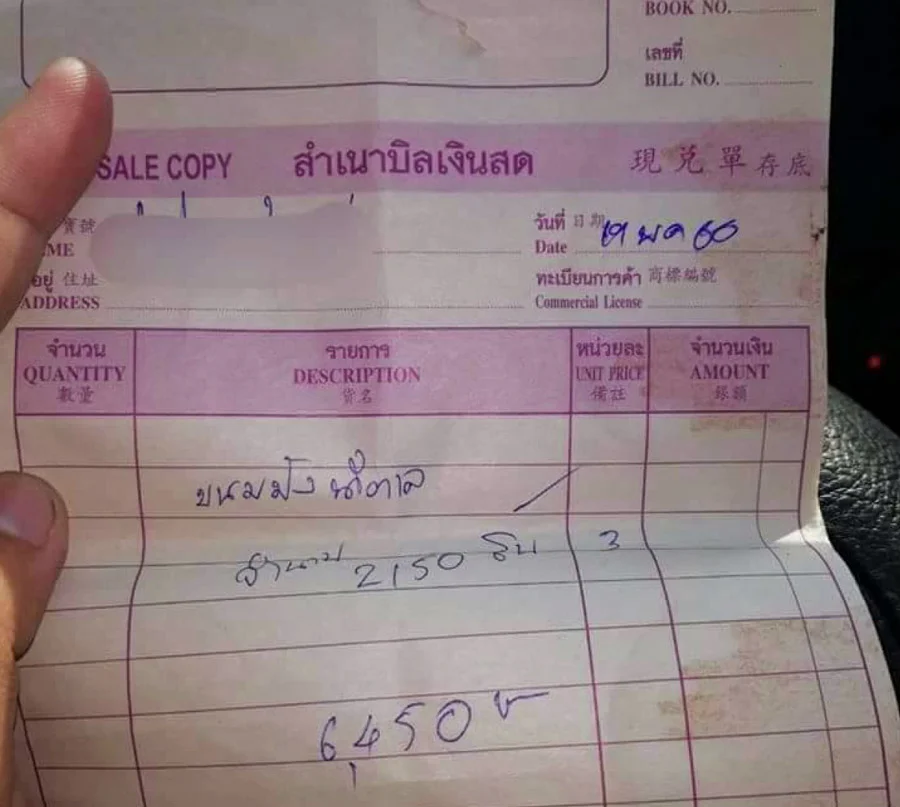 BOOK NO.
เลขที่
BILL NO.
SALE COPY สำเนาบิลเงินสด 現兌單存底
寶號
วันที่ 日期
Date พค 60
อยู่ 住址
ADDRESS
ทะเบียนการค้า 商標編號
Commercial License
จำนวน รายการ หน่วยละ จำนวนเงิน
QUANTITY DESCRIPTION UNIT PRICE AMOUNT
數量 貨名 備註 銀額
ขนมปังน้ำตาล
จำนวน 2150 ชิ้น 3
6,450 บ